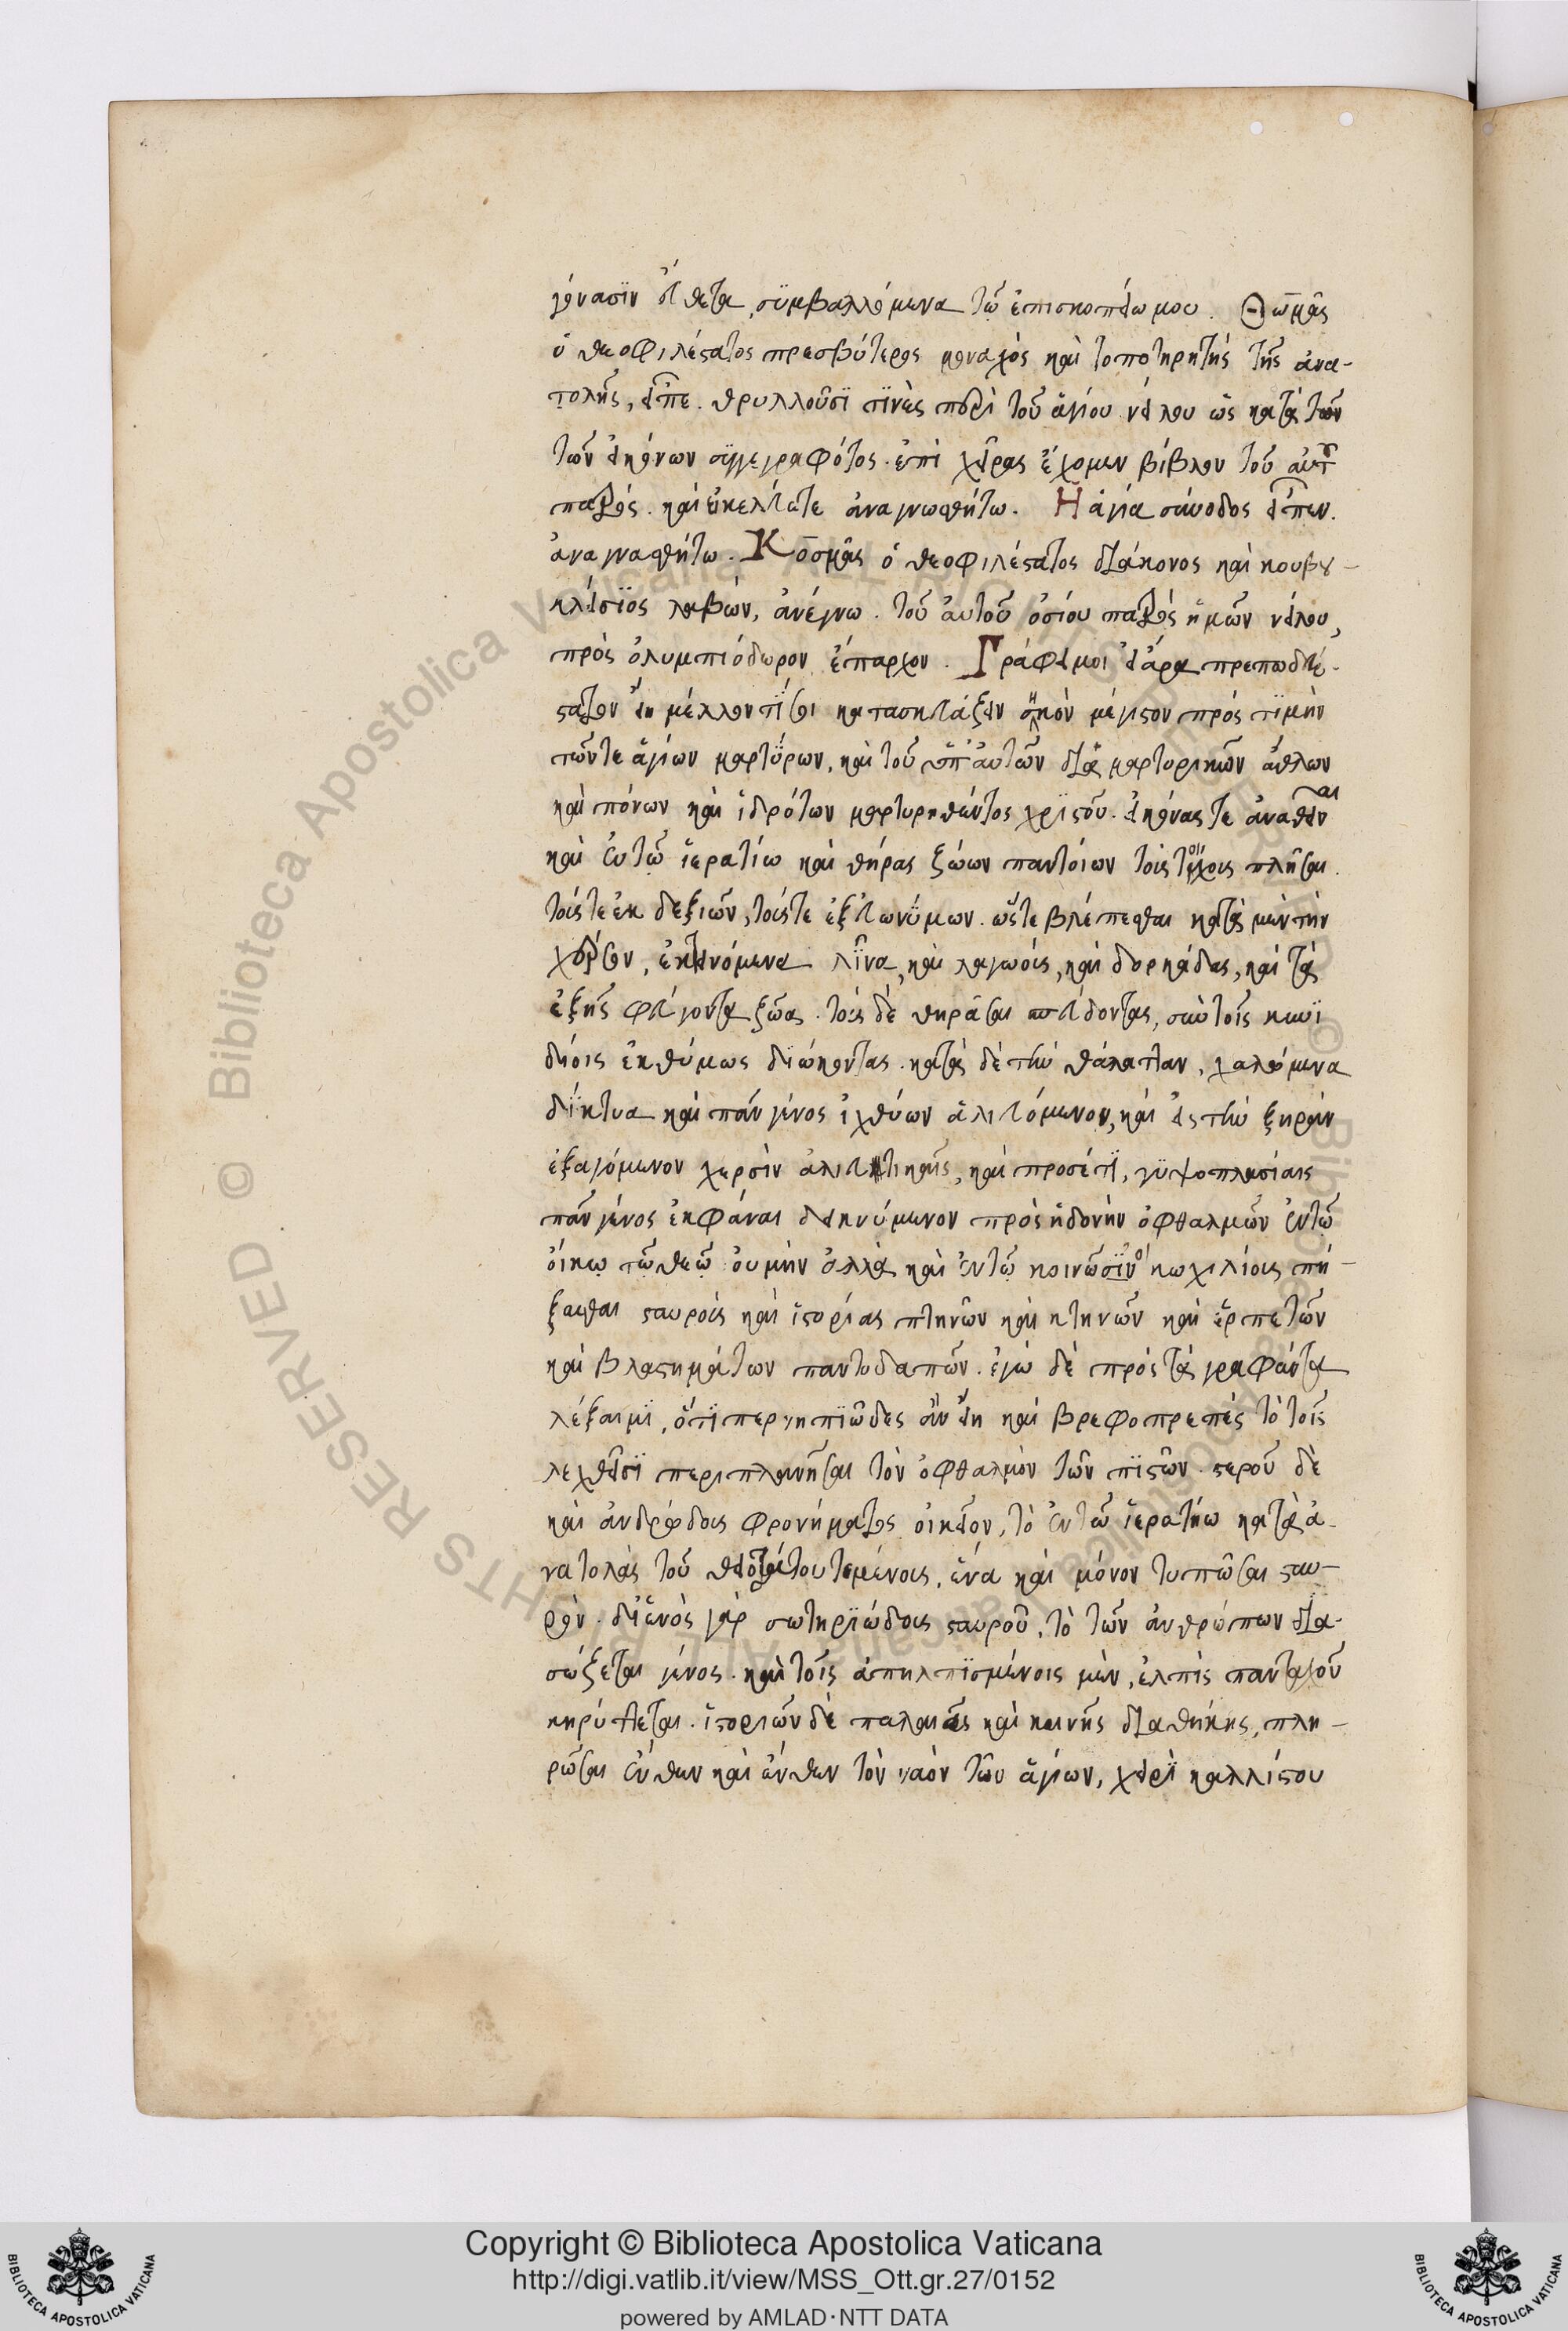 γόνασϊν ἐτίθετα, σϋμβαλλόμενα τῶ ἐπισκοπείω μου. Θωμᾶς
ὁ θεοφιλέστατος πρεσβύτερος μοναχὸς καὶ τοποτηρητής τῆς ἀνα-
τολῆς, εἶπε. θρυλλοῦσϊ τϊνὲς περὶ τοῦ ἁγίου νείλου ὡς κατὰ τῶν
τῶν εἰκόνων σϋγγεγραφότος. ἐπὶ χεῖρας ἔχομεν βίβλον τοῦ αὐτοῦ
πατρός. καὶ εἰ κελεύετε ἀναγνωσθήτω. Η ἁγία σύνοδος εἶπεν.
ἀναγνωσθήτω. Κοσμᾶς ὁ θεοφιλέστατος διάκονος καὶ κουβου-
κλείσϊος λαβών, ἀνέγνω. τοῦ ἀυτοῦ ὁσίου πατρός ἡμῶν νείλου,
πρὸς ὀλυμπιόδωρον ἔπαρχον. Γράφεις μοι εἰ ἄρα πρεπωδέ-
στατον εἴη μέλλοντΐ σοι κατασκευάζειν σηκὸν μέγιστον πρὸς τϊμὴν
τῶντε ἁγίων μαρτΰρων, καὶ τοῦ ὑπ' ἀυτῶν διὰ μαρτυρικῶν ἄθλων
καὶ πόνων καὶ ἱδρότων μαρτυρηθέντος χριστοῦ. εἰκόνας τε ἀναθεῖναι
καὶ ἐν τῶ ἱερατίω καὶ θήρας ζώων παντοίων τοὺς τοίχους πλῆσαι.
τούς τε ἐκ δεξιῶν, τούς τε ἐξ εὐωνΰμων. ὥστε βλέπεσθαι κατὰ μὲν τὴν
χέρσον, ἐκτεινόμενα λΐνα, καὶ λαγωούς, καὶ δορκάδας, καὶ τὰ
ἑξῆς φεύγοντα ζῶα. τοὺς δὲ θηρᾶσαι σπεύδοντας, σὺν τοῖς κυνϊ
δίοις ἐκθύμως διώκοντας. κατὰ δὲ τὴν θάλατταν, χαλώμενα
δΐκτυα καὶ πάν γένος ἰχθύων ἁλιευόμενον, καὶ εἰς τὴν ξηρὰν
ἐξαγόμενον χερσὶν ἁλιευτικαῖς, καὶ προσέτϊ, γϋψοπλασίαις
πᾶν γένος ἐκφάναι δεικνύμενον πρὸς ἡδονὴν ὀφθαλμῶν ἐν τῶ
ὄικω τῶ θεῶ ὀυμὴν ἀλλὰ καὶ ἐν τῶ κοινῶ οἴκω χιλίους πή-
ξασθαι σταυροὺς καὶ ἱστορίας πτηνῶν καὶ κτηνῶν καὶ ἑρπετῶν
καὶ βλαστημάτων παντοδαπῶν. ἐγὼ δὲ πρὸς τὰ γραφέντα
λέξαιμϊ, ὅτϊπερ νηπϊῶδες ἂν εἴη καὶ βρεφοπρεπὲς τὸ τοῖς
λεχθεῖσϊ περιπλανῆσαι τὸν ὀφθαλμὸν τῶν πϊστῶν. στερροῦ δὲ
καὶ ἀνδρώδους φρονήματος οἰκεῖον, τὸ ἐν τῶ ἱερατείω κατὰ ἀ-
νατολὰς τοῦ θειοτάτου τεμένους, ἕνα καὶ μόνον τυπῶσαι σταυ-
ρόν. δι' ἑνὸς γὰρ σωτηρϊώδους σταυροῦ, τὸ τῶν ἀνθρώπων δια-
σώζεται γένος. καὶ τοῖς ἀπηλπϊσμένοις μὲν, ἐλπὶς πανταχοῦ
κηρύττεται. ἱστοριῶν δὲ παλαιᾶς καὶ καινῆς διαθήκης, πλη-
ρῶσαι ἔνθεν καὶ ἔνθεν τὸν ναὸν τῶν ἁγίων, χειρΐ καλλίστου
Copyright © Biblioteca Apostolica Vaticana
http://digi.vatlib.it/view/MSS_Ott.gr.27/0152
powered by AMLAD·NTT DATA